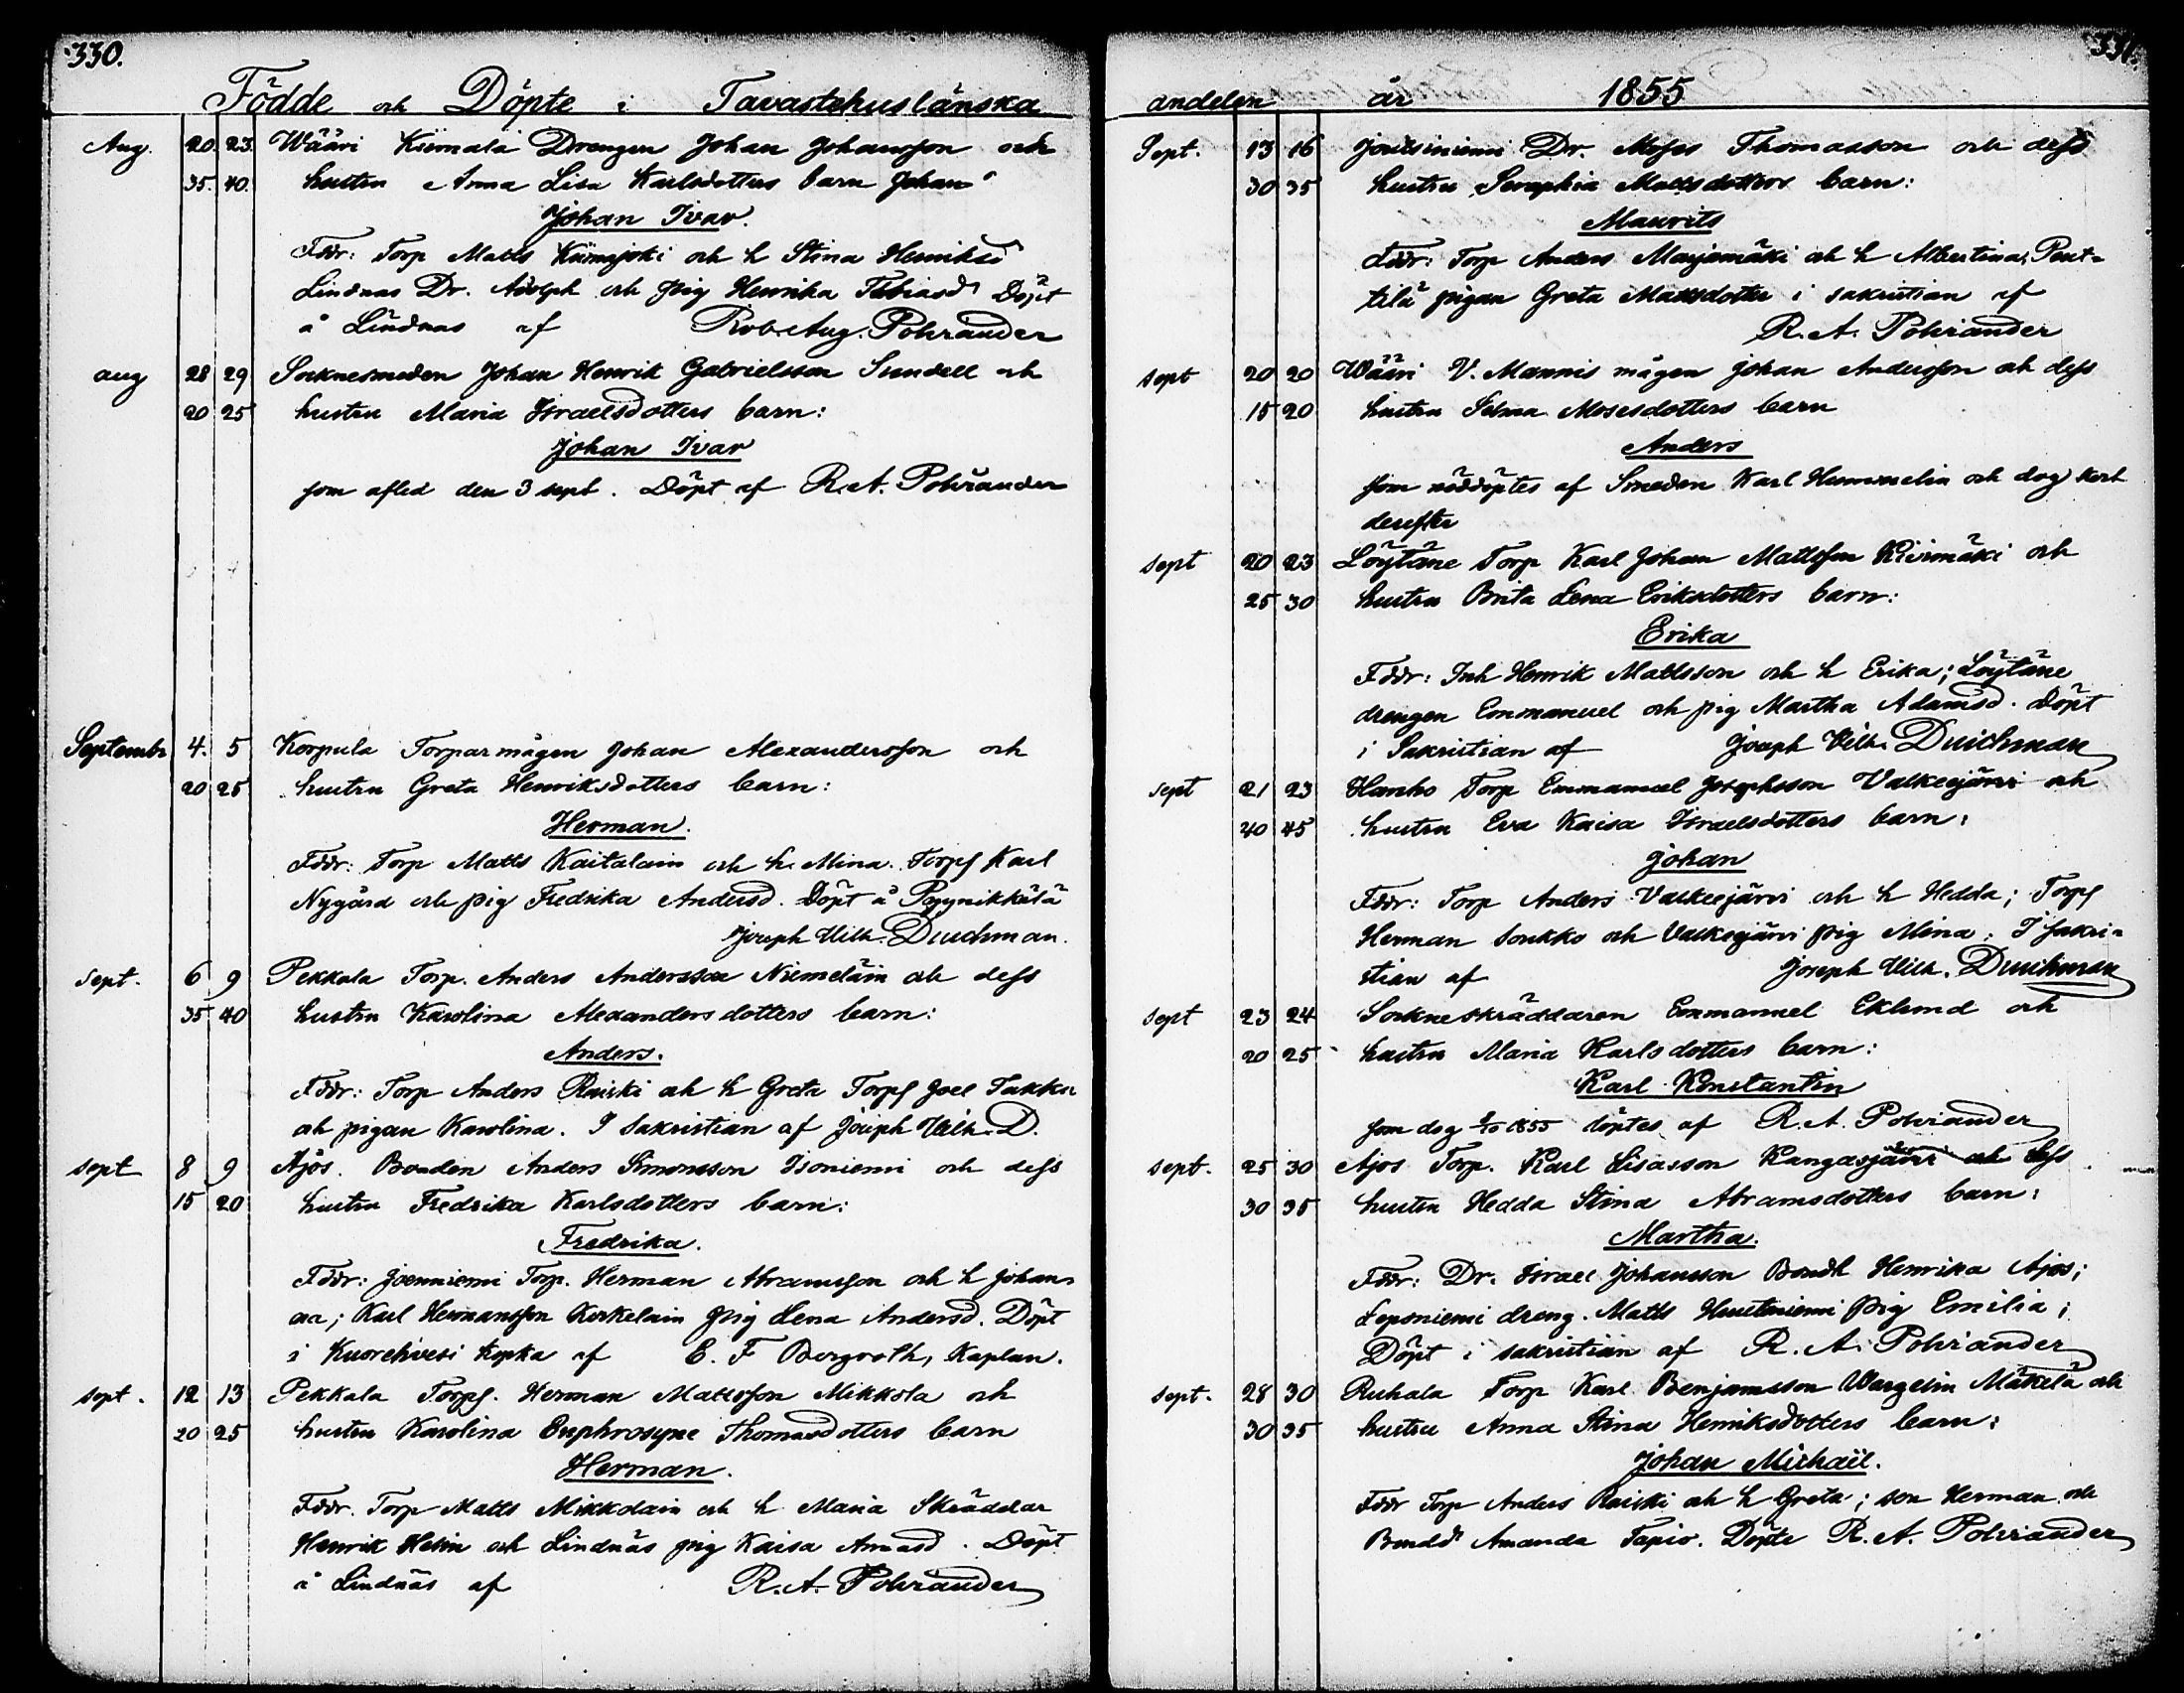 330.
Födde och Döpte i Tavastehuslänska
Aug. 20. 23. Wääri Kiimala Drengen Johan Johansson och
35. 40. hustru Anna Lisa Karlsdotters barn Johan
Johan Ivar.
Fddr: Torp Matts Kiimajoki och h Stina Henriksd
Lindnas Dr. Adolph och pig Henrika Tobiasd Döpt
å Lindnas af Rob. Aug. Pohrander
aug 28 29 Socknesmeden Johan Henrik Gabrielsson Sundell och
20 25 hustru Maria Israelsdotters barn:
Johan Ivar
som afled den 3 sept. Döpt af R. A. Pohrander
Septembr 4. 5 Korpula Torparmågen Johan Alexandersson och
20 25 hustru Greta Henriksdotters barn:
Herman.
Fddr: Torp Matts Kaitalain och h. Mina. Torps Karl
Nygård och pig Fredrika Andersd. Döpt å Pyynikkälä
Joseph Wilh. Druchman.
Sept. 6 9 Pekkala Torp. Anders Andersson Niemeläin och dess
35 40 hustru Karolina Alexandersdotters barn:
Anders.
Fddr: Torp Anders Raiski och h Greta Torps Joel Takku
och pigan Karolina. I Sakristian af Joseph Wilh. D.
sept 8 9 Ajös. Bonden Anders Simonsson Isoniemi och dess
15 20 hustru Fredrika Karlsdotters barn:
Fredrika.
Fddr: Joenniemi Torp. Herman Abramsson och h Johan-
na; Karl Hermansson Kerkelain pig Lena Andersd. Döpt
i Kuorehvesi kyrka af E. F Bergroth, Kaplan.
sept. 12 13 Pekkala Torps. Herman Mattsson Mikkola och
20 25 hustru Karolina Euphrosyne Thomasdotters barn
Herman.
Fddr. Torp Matts Mikkolain och h Maria Skräddar
Henrik Helin och Lindnäs pig Kaisa Annasd. Döpt
å Lindnäs af R. A. Pohrander
331.
andelen år 1855
Sept. 13 16 Joutsiniemi Dr. Moses Thomasson och dess
30 35 hustru Seraphia Mattsdotters barn:
Maurits
Fddr: Torp Anders Marjamäki och h Albertina; Pent-
tilä pigan Greta Mattsdotter i sakristian af
R. A. Pohrander
sept 20 20 Wääri V. Mannis mågen Johan Andersson och dess
15 20 hustru Selma Mosesdotters barn
Anders
som nöddöptes af Smeden Karl Hummelin och dog kort
derefter
sept 20 23 Löytäne Torp Karl Johan Mattsson Kivimäki och
25 30 hustru Brita Lena Eriksdotters barn:
Erika
Fddr: Inh Henrik Mattsson och h Erika; Löytäne
drengen Emmanuel och pig Martha Adamsd. Döpt
i Sakristian af Joseph Wilh. Druchman
sept 21 23 Hanho Torp Emmanuel Josephsson Valkeejärvi och
40 45 hustru Eva Kaisa Israelsdotters barn:
Johan
Fddr: Torp Anders Valkeejärvi och h Hedda; Torps
Herman Soukko och Valkeejärvi pig Mina. I sakri-
stian af Joseph Wilh. Druchman
sept 23 24 Sockneskräddaren Emmanuel Eklund och
20 25 hustru Maria Karlsdotters barn:
Karl Konstantin
som dog 8/10 1855 döptes af R. A. Pohrander
sept. 25 30 Ajos Torp. Karl Lisasson Kangasjärvi och dess
30 35 hustru Hedda Stina Abramsdotters barn:
Martha.
Fddr: Dr. Israel Johansson Bondh Henrika Ajos;
Leponiemi dreng. Matts pig Emilia;
Döpt i sakristian af R. A. Pohrander
sept. 28 30 Ruhala Torp Karl Benjamsson Wargelin Mäkelä och
30 35 hustru Anna Stina Henriksdotters barn:
Johan Michaël.
Fddr Torp Anders Raiski och h Greta; son Herman och
Bondd Amanda Tapio. Döpte R. A. Pohrander